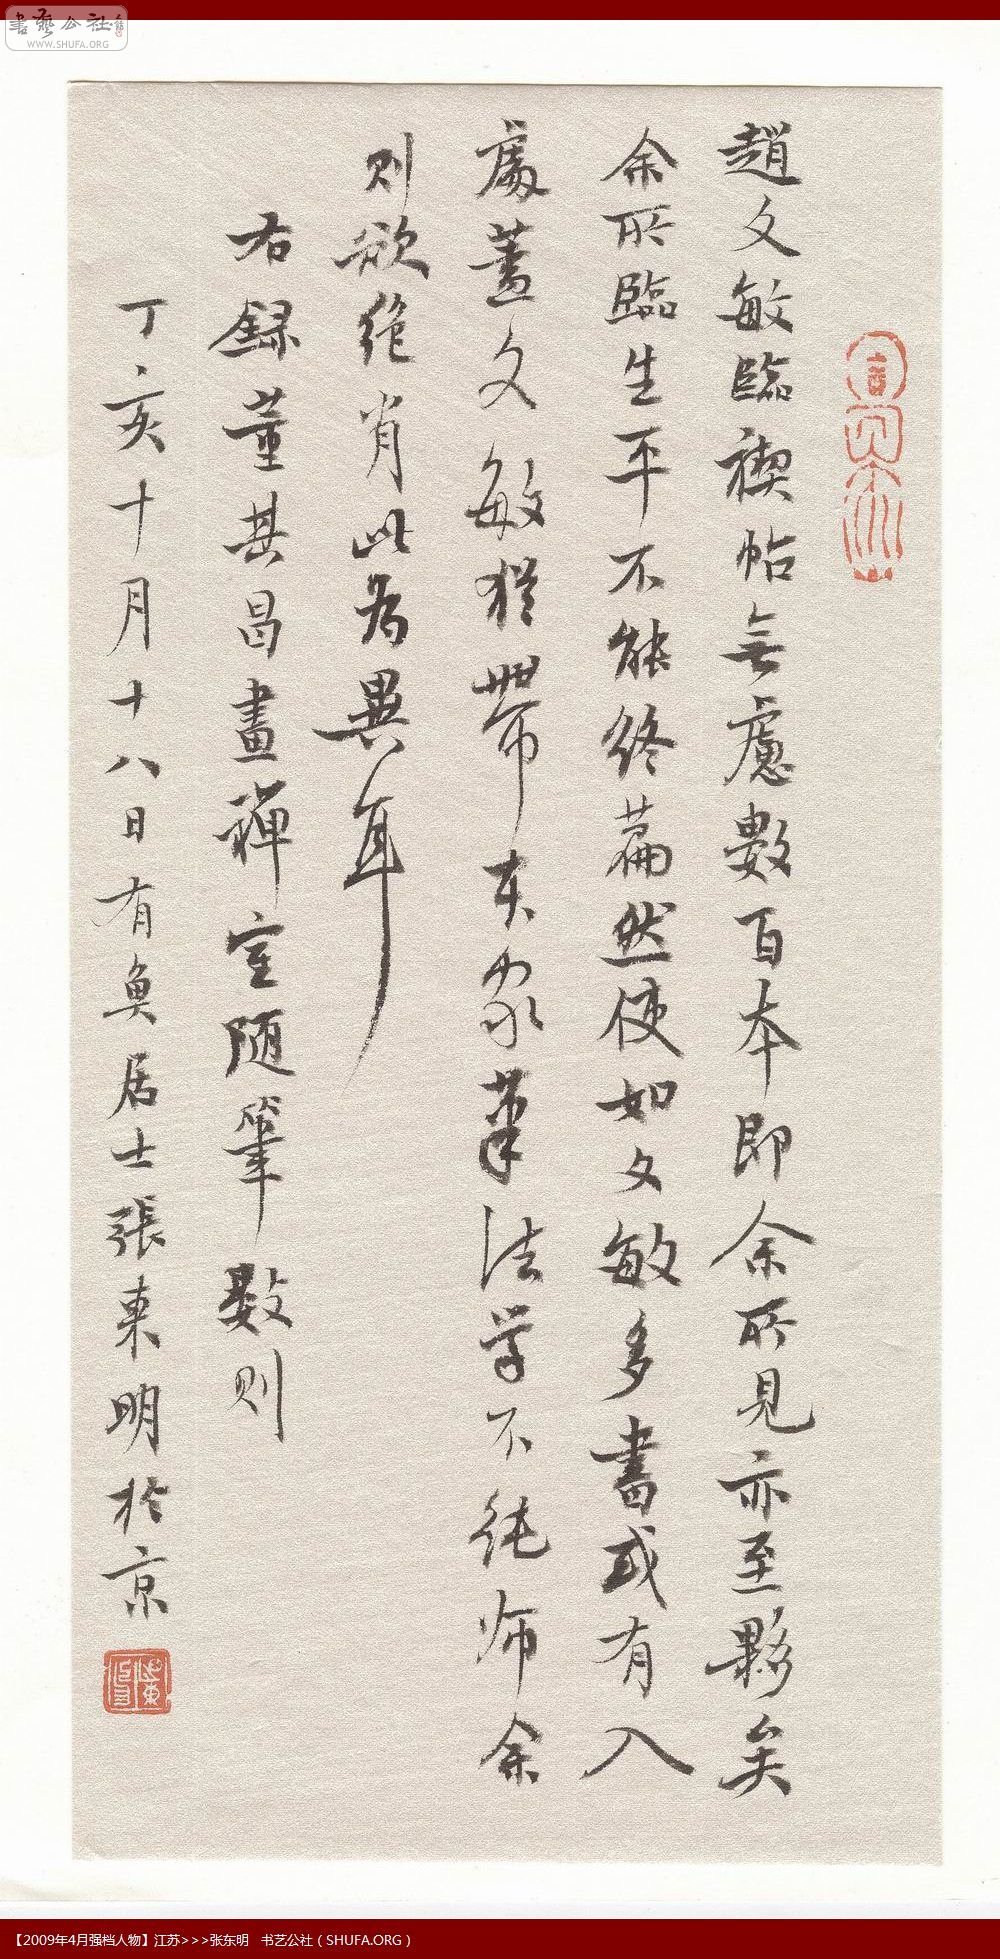 書藝公社
WWW.SHUFA.ORG
趙文敏臨禊帖無慮數百本即余所見亦至夥矣
余所臨生平不能終篇然使如文敏多書或有入
處蓋文敏猶帶本家筆法学不純师余
则欲绝肖此為異耳
右録董其昌畫禪室随筆数则
丁亥十月十八日有魚居士張東明於京
【2009年4月强档人物】江苏>>>张东明 书艺公社（SHUFA.ORG）